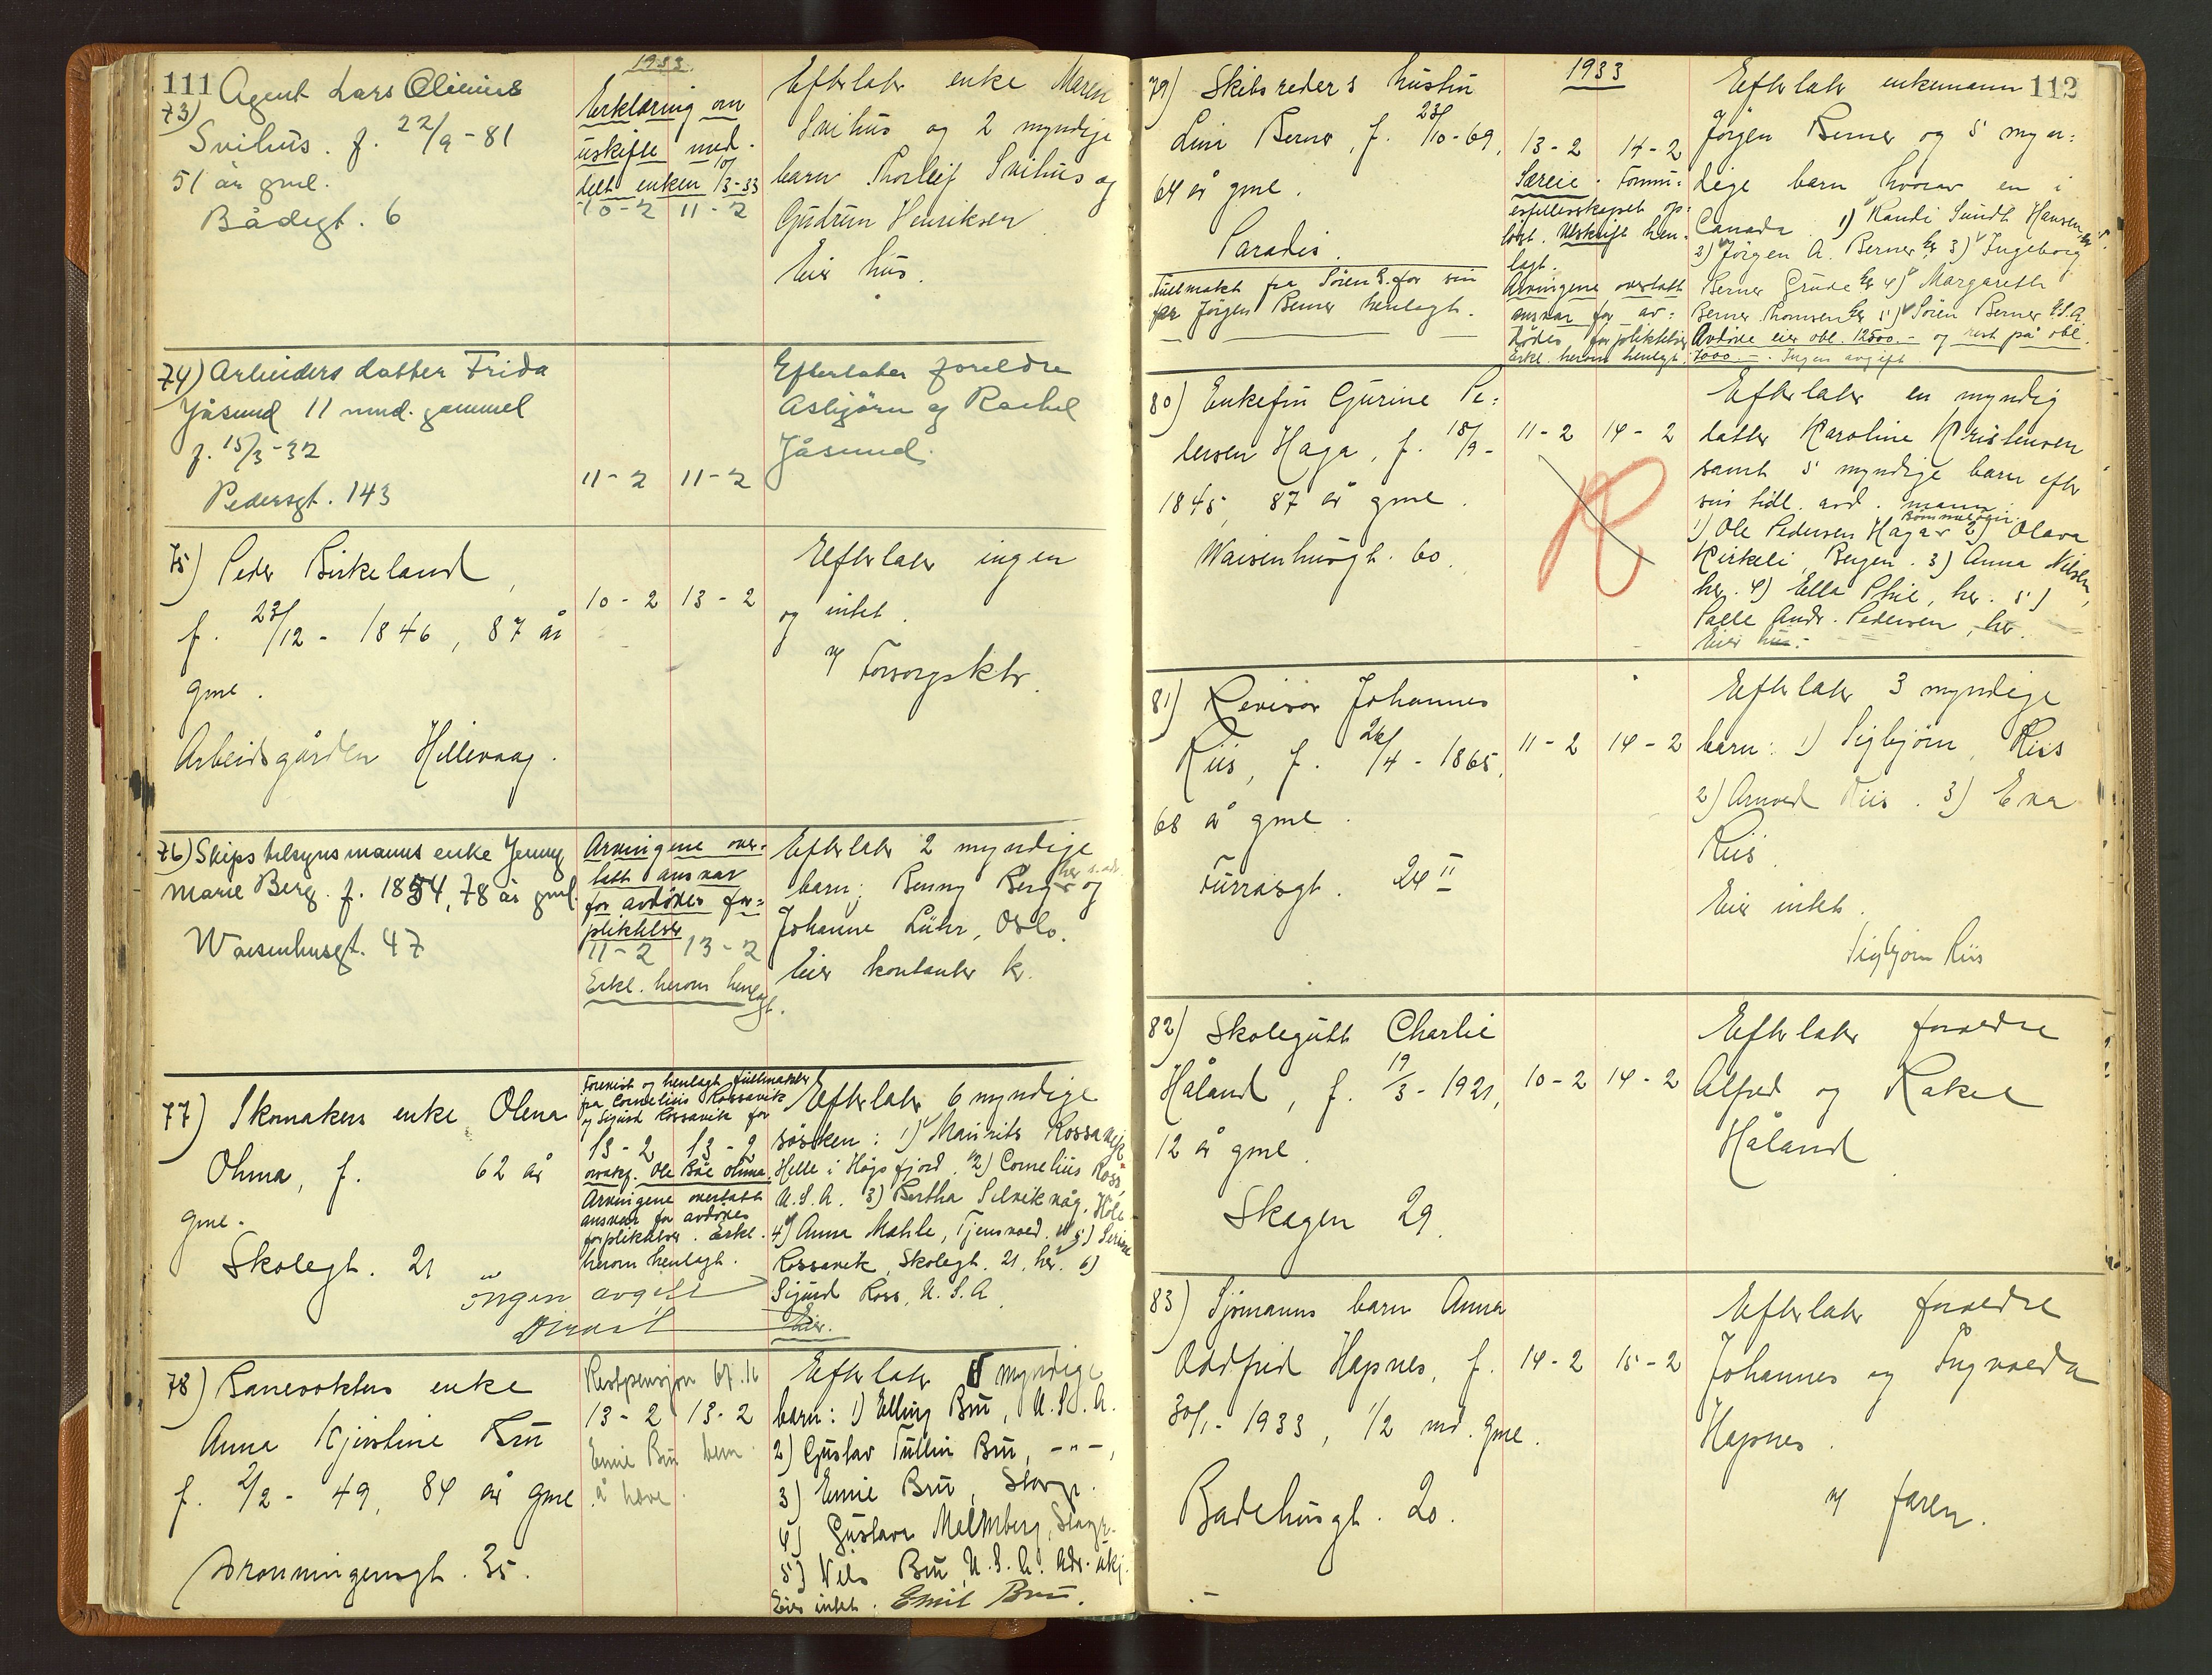 111
1933.
73)
Agent Lars Olinius
Svihus. f. 22/9-81
51 år gml.
Bådegt. 6
Erklæring om
uskifte med-
delt enken 10/3-33
10-2 11-2
Efterlater enke Maren
Svihus og 2 myndige
barn Thorleif Svihus og
Gudrun Henriksen.
Eier hus.
74) Arbeiders datter Frida
Jåsund 11 mnd. gammel
f. 15/3-32
Pedersgt. 143
11-2 11-2
Efterlater foreldre
Asbjørn og Rachel
Jåsund.
75) Peder Birkeland,
f. 23/12 - 1846, 87 år
gml.
Arbeidsgården Hillevaag.
10-2 13-2
Efterlater ingen
og intet.
v/ Forsorgsktr.
76) Skipstilsynsmanns enke Jenny
Marie Berg. f. 1854, 78 år gml.
Waisenhusgt. 47
Arvingene over-
tatt ansvar
for avdødes for=
pliktelser
11-2 13-2
Erkl. herom henlagt.
Efterlater 2 myndige
barn: Benny Berg her s. adr. og
Johanne Lühr, Oslo.
Eier kontanter kr.
77) Skomakers enke Olena
Ohma, f. 62 år
gml.
Skolegt. 21
Ingen avgift
Forevist og henlagt fullmakter
fra Cornelius Rossavik
og Sigurd Rossavik for
13-2 13-2
Ole Båe Ohma.
Arvingene overtatt
ansvar for avdødes
forpliktelser. Erkl.
herom henlagt.
Efterlater 6 myndige
søsken: 1) Maurits Rossavik
Helle i Høgsfjord. 2) Cornelius Ross,
U.S.A. 3) Bertha Selvikvåg, Høle
4) Anna Mæhle, Tjensvold. 5) Serine
Rossavik, Skolegt. 21, her. 6)
Sigurd Ross, U.S.A.
Eier.
78) Banevokters enke
Anna Kjirstine Bru
f. 2/2 - 49, 84 år gml.
Dronningensgt. 35.
Restpensjon
13-2 13-2
Emil Bru
å heve.
Efterlater 5 myndige
barn: 1) Elling Bru, U.S.A.
2) Gustav Tullin Bru, -"-,
3) Emil Bru, Stavgr.
4) Gustava Malmberg, Stavgr.
5) Nels Bru, U.S.A. Adr. ukj.
Eier intet. Emil Bru.
112
1933
79) Skibsreders hustru
Lina Berner, f. 23/10-69,
64 år gml.
Paradis.
Fullmakt fra Søren B. for sin
far Jørgen Berner henlagt.
13-2 14-2
Særeie. Formu=
esfellesskapet op=
løst. Utskrift hen-
lagt.
Arvingene overtatt
ansvar for av=
dødes forpliktelser
Erkl. herom henlagt.
Efterlater enkemann
Jørgen Berner og 5 myn=
dige barn hvorav en i
Canada. 1) Randi Sundt Hansen, her.
2) Jørgen A. Berner her 3) Ingeborg
Berner Grude her 4) Margareth
Berner Thomsen her 5) Søren Berner U.S.A.
Avdøde eier obl. 12500.- og rest på obl.
7000.-. Ingen avgift
80) Enkefru Gurine Pe=
dersen Haga, f. 18/9-
1845, 87 år gml.
Waisenhusgt. 60.
11-2 14-2
Efterlater en myndig
datter Karoline Kristensen
samt 5 myndige barn efter
sin tidl. avd. mann:
1) Ole Pedersen Haga 2) Olava
Kirkeli, Bergen. 3) Anna Nilsen,
her. 4) Ella Phil, her. 5)
Palle Andr. Pedersen, her.
Eier hus.
81) Revisor Johannes
Riis, f. 26/4 - 1865,
68 år gml.
Furrasgt. 24 II
11-2 14-2
Efterlater 3 myndige
barn: 1) Sigbjørn Riis
2) Arnved Riis. 3) Eva
Riis.
Eier intet.
Sigbjørn Riis
82) Skolegutt Charlie
Håland, f. 19/3 - 1921,
12 år gml.
Skagen 29.
10-2 14-2
Efterlater foreldre
Alfred og Rakel
Håland.
83) Sjømanns barn Anna
Oddfrid Hapnes, f.
30/1 - 1933, 1/2 md. gml.
Badehusgt. 20.
14-2 15-2
Efterlater foreldre
Johannes og Ingvalda
Hapnes.
v/ faren.